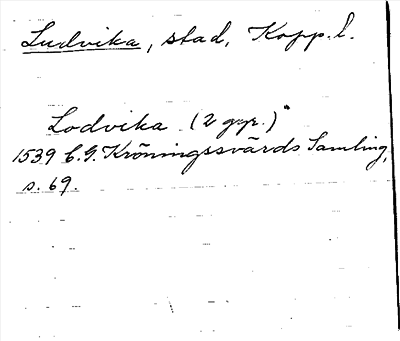 Ludvika, stad, Kopp. l.
Lodvika (2 ggr.)
1539 C. G. Kröningssvärds Samling,
s. 69.